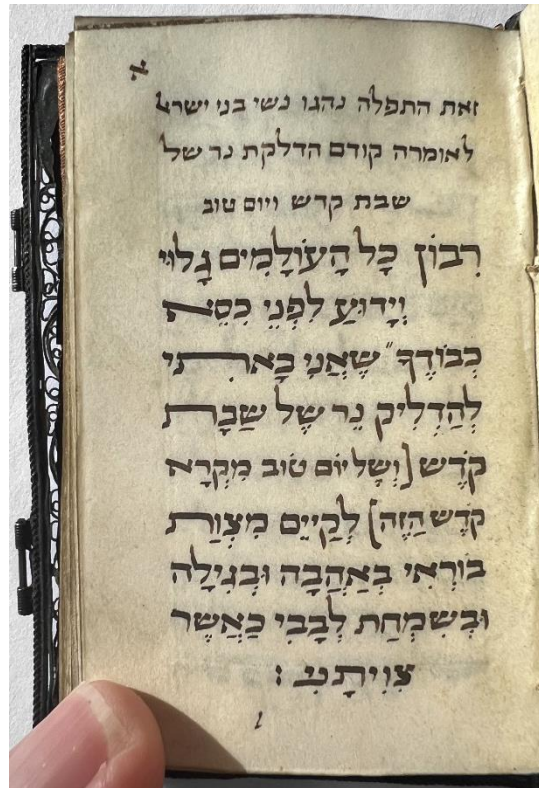 א
זאת התפלה נהגו נשי בני ישראל
לאומרה קודם הדלקת נר של
שבת קדש ויום טוב
רִבוֹן כָּל הָעוֹלָמִים גָּלוּי
וְיָדוּעַ לִפְנֵי כִסֵא
כְבוֹדֶךָ שֶׁאֲנִי בָאתִי
לְהַדְלִיק נֵר שֶׁל שַׁבָּת
קֹדֶש [וְשֶׁל יוֹם טוֹב מִקְרָא
קֹדֶש הַזֶה] לְקַיֵים מִצְוַת
בּוֹרְאִי בְּאַהֲבָה וּבְגִילָה
וּבְשִׂמְחַת לְבָבִי כַּאֲשֶׁר
צִוִיתָנִי :